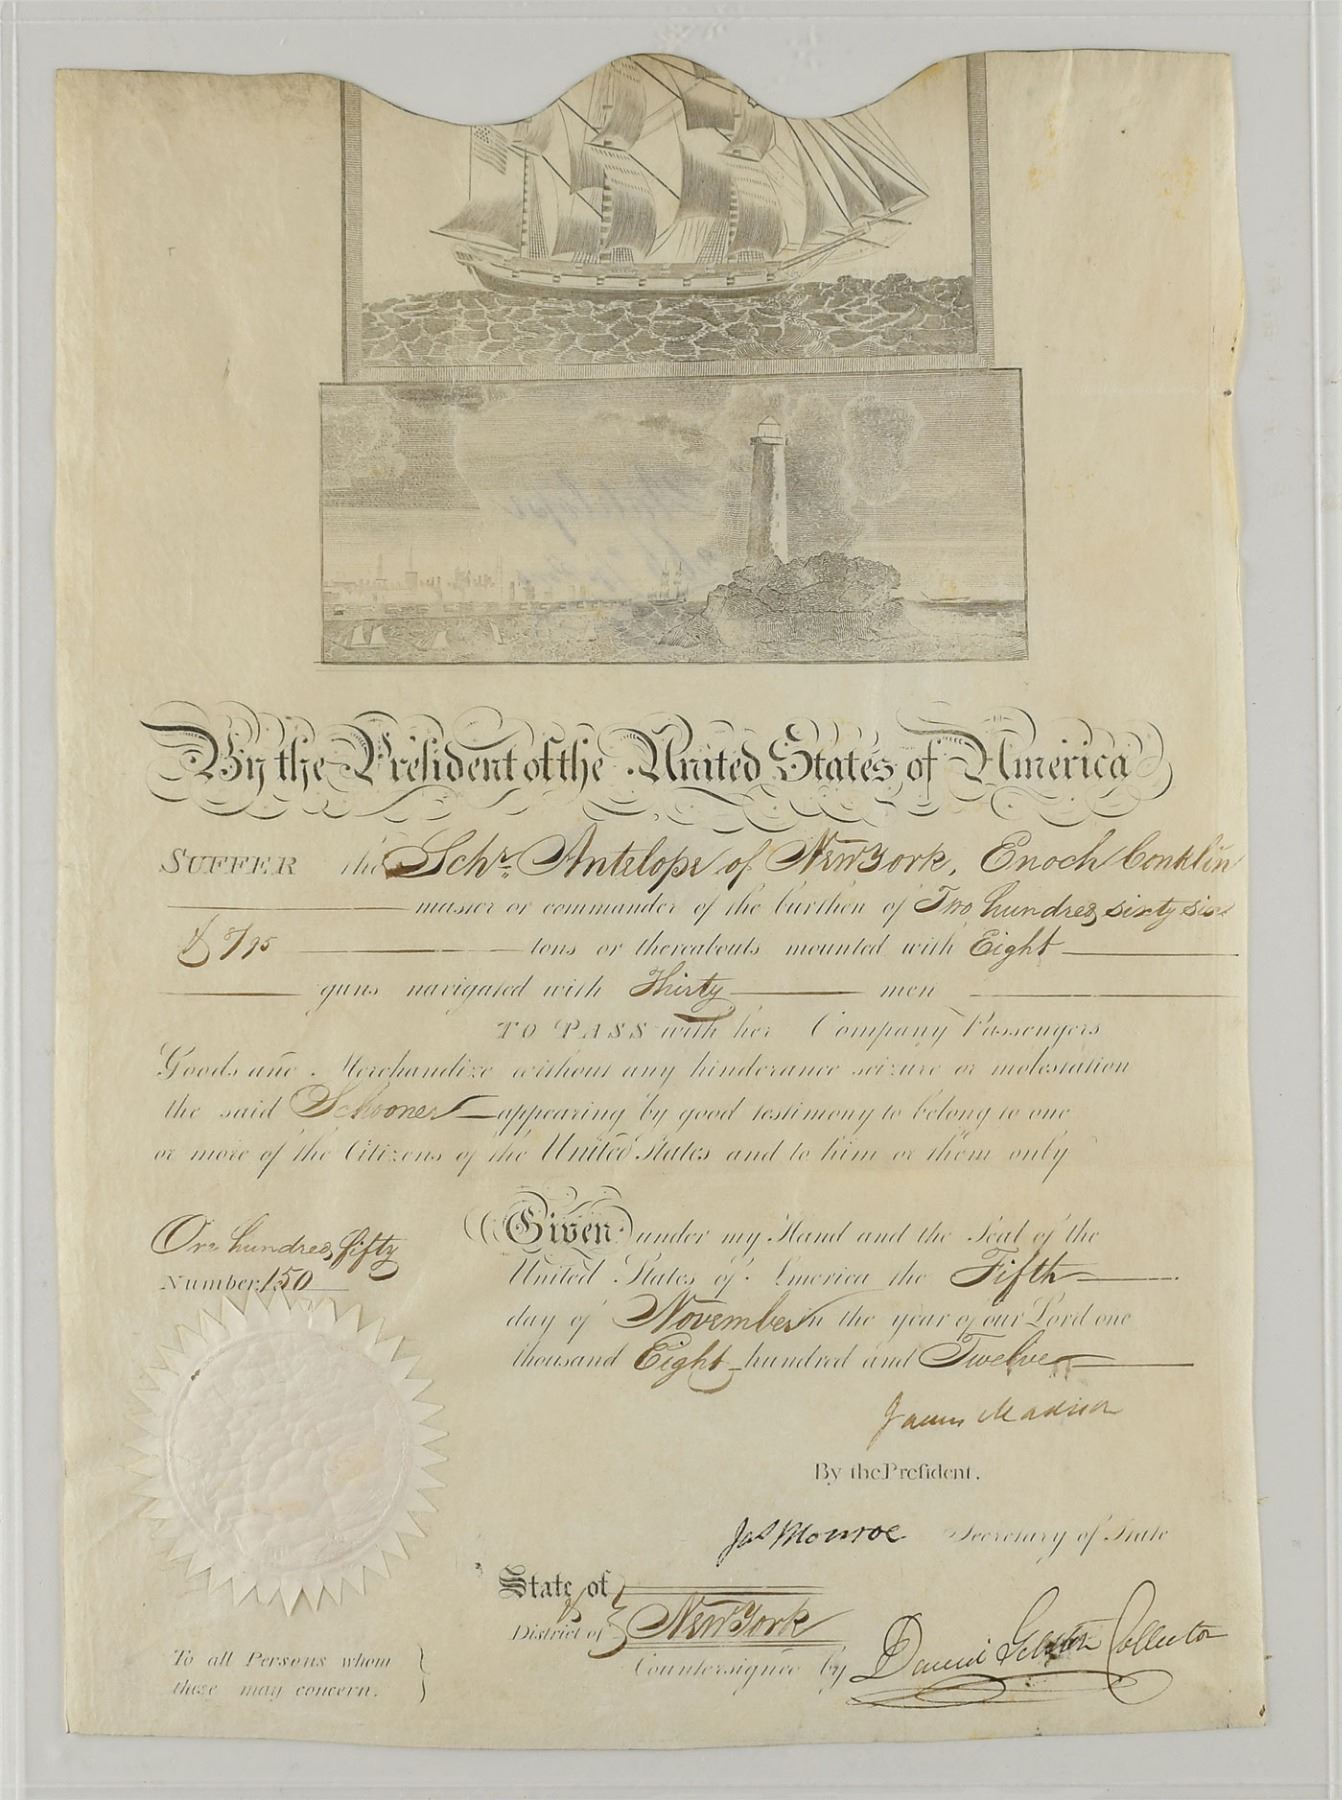 By the President of the United States of America
SUFFER the Schr. Antelope of New York, Enoch Conklin
master or commander of the burthen of Two hundred, sixty six
& 5/95 tons or thereabouts mounted with Eight
guns navigated with Thirty men
TO PASS with her Company Passengers
Goods and Merchandize without any hinderance seizure or molestation
the said Schooner appearing by good testimony to belong to one
or more of the Citizens of the United States and to him or them only
One hundred, fifty
Number 150
Given under my Hand and the Seal of the
United States of America the Fifth
day of November in the year of our Lord one
thousand Eight hundred and Twelve
James Madison
By the President.
Jas Monroe Secretary of State
State of
District of New York
Countersigned by David Gelston Collector
To all Persons whom
these may concern.